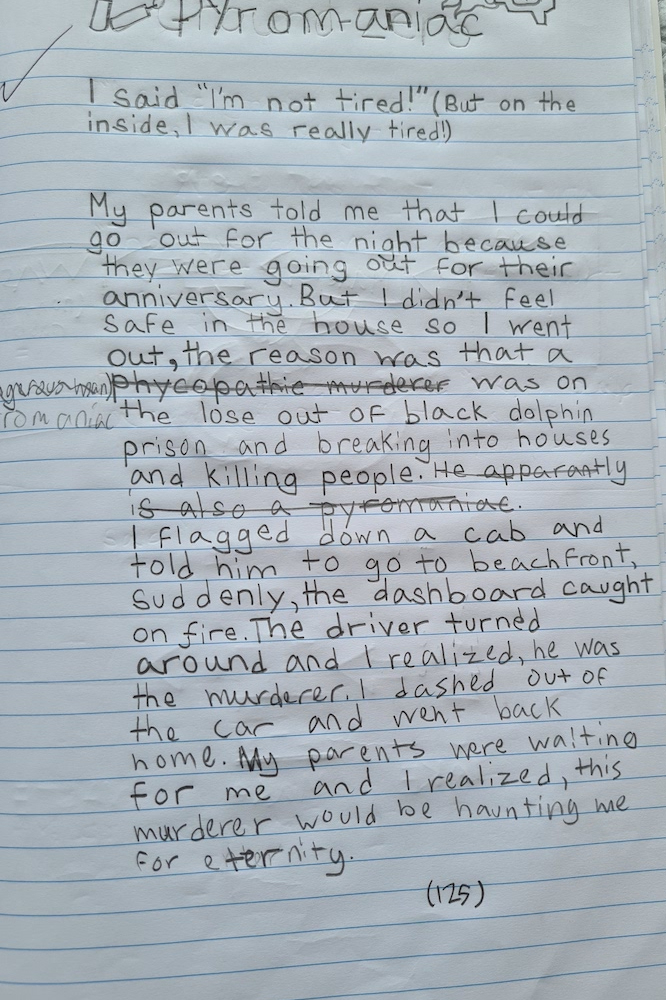 Pyromaniac
I said "I'm not tired!" (But on the
inside, I was really tired!)
My parents told me that I could
go out for the night because
they were going out for their
anniversary. But I didn't feel
safe in the house so I went
out, the reason was that a
phycopathic murderer was on
romaniac the lose out of black dolphin
prison and breaking into houses
and killing people. He apparantly
is also a pyromaniac.
I flagged down a cab and
told him to go to beachfront,
suddenly, the dashboard caught
on fire. The driver turned
around and I realized, he was
the murderer. I dashed out of
the car and went back
home. My parents were waiting
for me and I realized, this
murderer would be haunting me
for eternity.
(125)